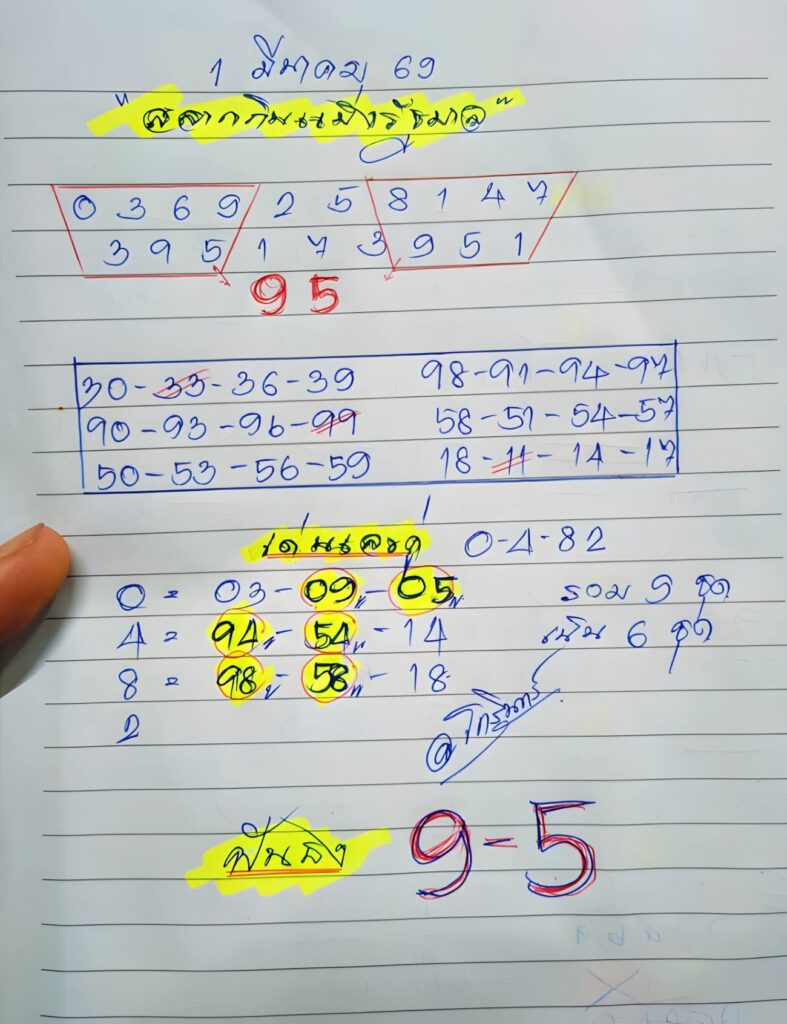 1 มีนาคม 69
"สลากกินแบ่งรัฐบาล"
0 3 6 9 2 5 8 1 4 7
3 9 5 1 7 3 9 5 1
9 5
30-33-36-39 98-91-94-97
90-93-96-99 58-51-54-57
50-53-56-59 18-11-14-17
เด่นเลข 0-4-82
0 = 03-09-05 รวม 9 ชุด
4 = 94-54-14 เน้น 6 ชุด
8 = 98-58-18
2
ฟันธง 9-5